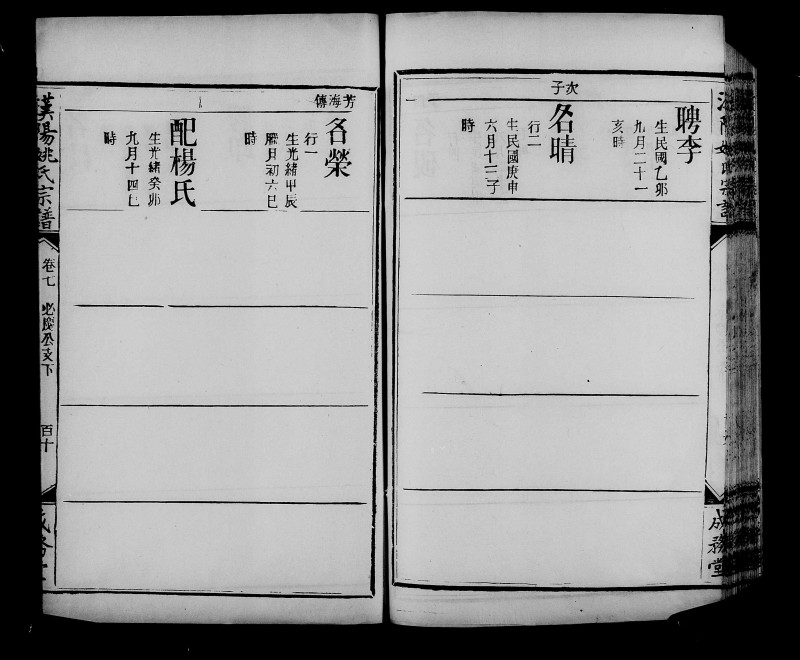 次子
聘李
生民國乙卯
九月二十一
亥時
名晴
行二
生民國庚申
六月十三子
時
成務堂
芳海傳
名榮
行一
生光緒甲辰
臘月初六巳
時
配楊氏
生光緒癸卯
九月十四巳
時
漢陽姚氏宗譜
卷七
必慶公支下
百十
成務堂